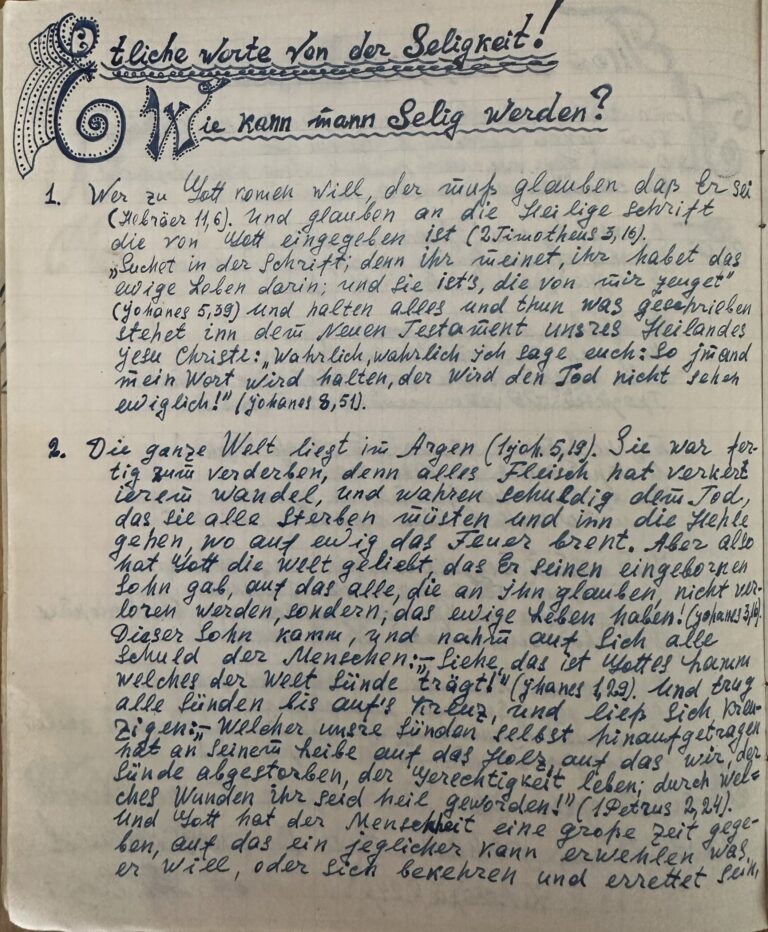 Etliche Worte von der Seligkeit!
Wie kann mann Selig werden?
1. Wer zu Gott komen will, der muß glauben daß Er sei
(Hebräer 11,6). Und glauben an die Heilige Schrift
die von Gott eingegeben ist (2 Timotheus 3,16).
„Suchet in der Schrift; denn ihr meinet, ihr habet das
ewige Leben darin; und sie ist's, die von mir zeuget"
(Johanes 5,39) und halten alles und thun was geschrieben
stehet inn dem Neuen Testament unsres Heilandes
Jesu Christi: „Wahrlich, wahrlich ich sage euch: So jmand
mein Wort wird halten, der wird den Tod nicht sehen
ewiglich!" (Johanes 8,51).
2. Die ganze Welt liegt im Argen (1 Joh. 5,19). Sie war fer-
tig zum verderben, denn alles Fleisch hat verkert
ierem wandel, und wahren schuldig dem Tod,
das sie alle sterben müsten und inn die Hehle
gehen, wo auf ewig das Feuer brent. Aber also
hat Gott die welt geliebt, das Er seinen eingebornen
Sohn gab, auf das alle, die an ihn glauben, nicht ver-
loren werden, sondern, das ewige Leben haben! (Johanes 3,16).
Dieser Sohn kamm, und nahm auf sich alle
schuld der Menschen: „Siehe, das ist Gottes Lamm
welches der Welt Sünde trägt!" (Jhanes 1,29). Und trug
alle Sünden bis auf's Kreuz, und ließ sich kreu-
zigen: „Welcher unsre Sünden selbst hinaufgetragen
hat an seinem Leibe auf das Holz, auf das wir, der
Sünde abgestorben, der Gerechtigkeit leben; durch wel-
ches Wunden ihr seid heil geworden!" (1 Petrus 2,24).
Und Gott hat der Menschheit eine große Zeit gege-
ben, auf das ein jeglicher kann erwehlen was
er will, oder sich bekehren und errettet sein,